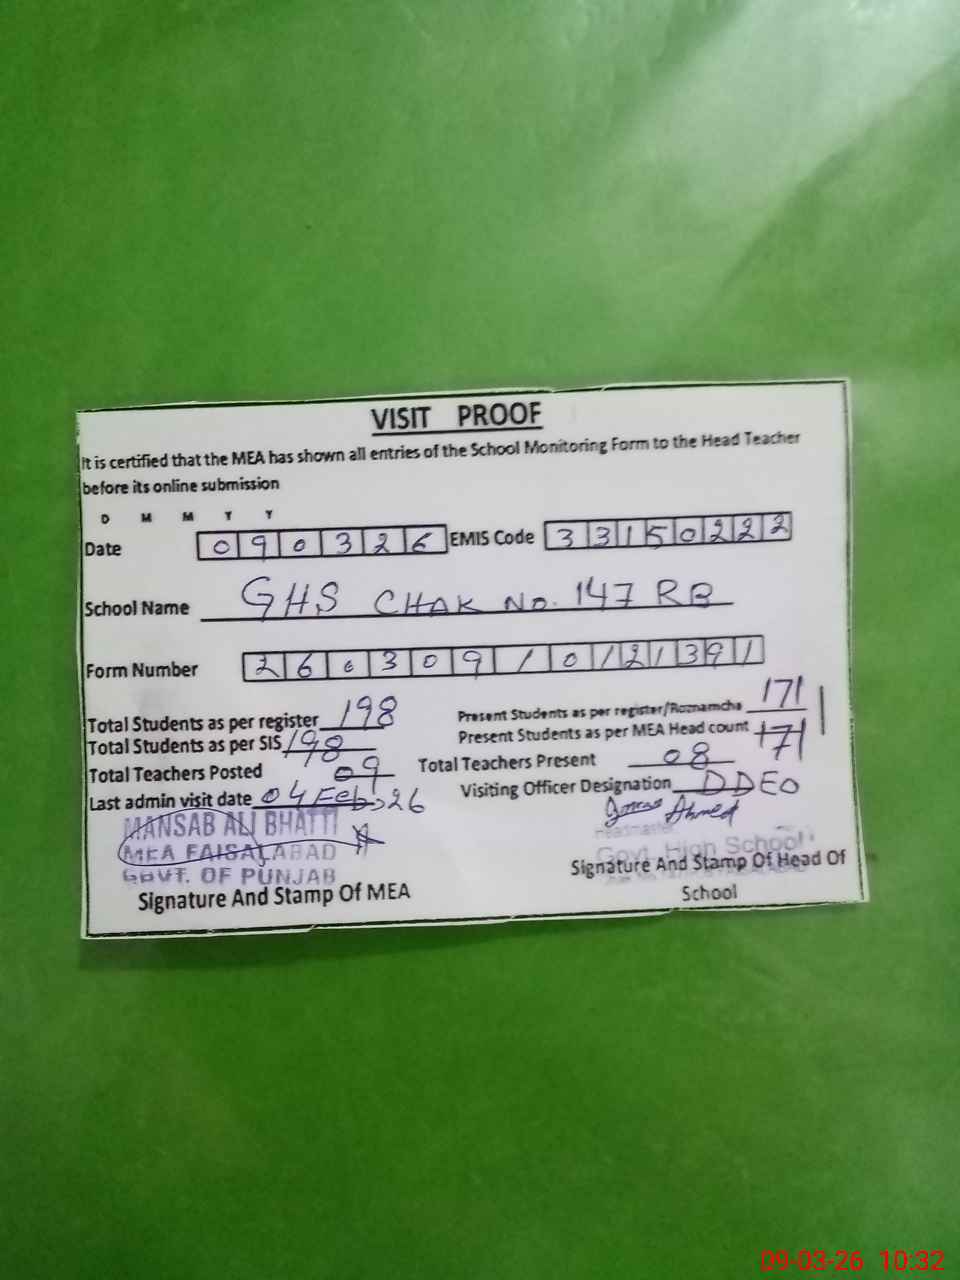 VISIT PROOF
It is certified that the MEA has shown all entries of the School Monitoring Form to the Head Teacher
before its online submission
D M M Y Y
Date 090326 EMIS Code 33150222
School Name GHS CHAK No. 147 RB
Form Number 26030910121391
Total Students as per register 198 Present Students as per register/Roznamcha 171
Total Students as per SIS 198 Present Students as per MEA Head count 171
Total Teachers Posted 09 Total Teachers Present 08
Last admin visit date 04 Feb, 26 Visiting Officer Designation DDEO
MANSAB ALI BHATTI
MEA FAISALABAD
GOVT. OF PUNJAB
Signature And Stamp Of MEA
Ahmed
Headmaster
Govt. High School
Signature And Stamp Of Head Of
School
09-03-26 10:32